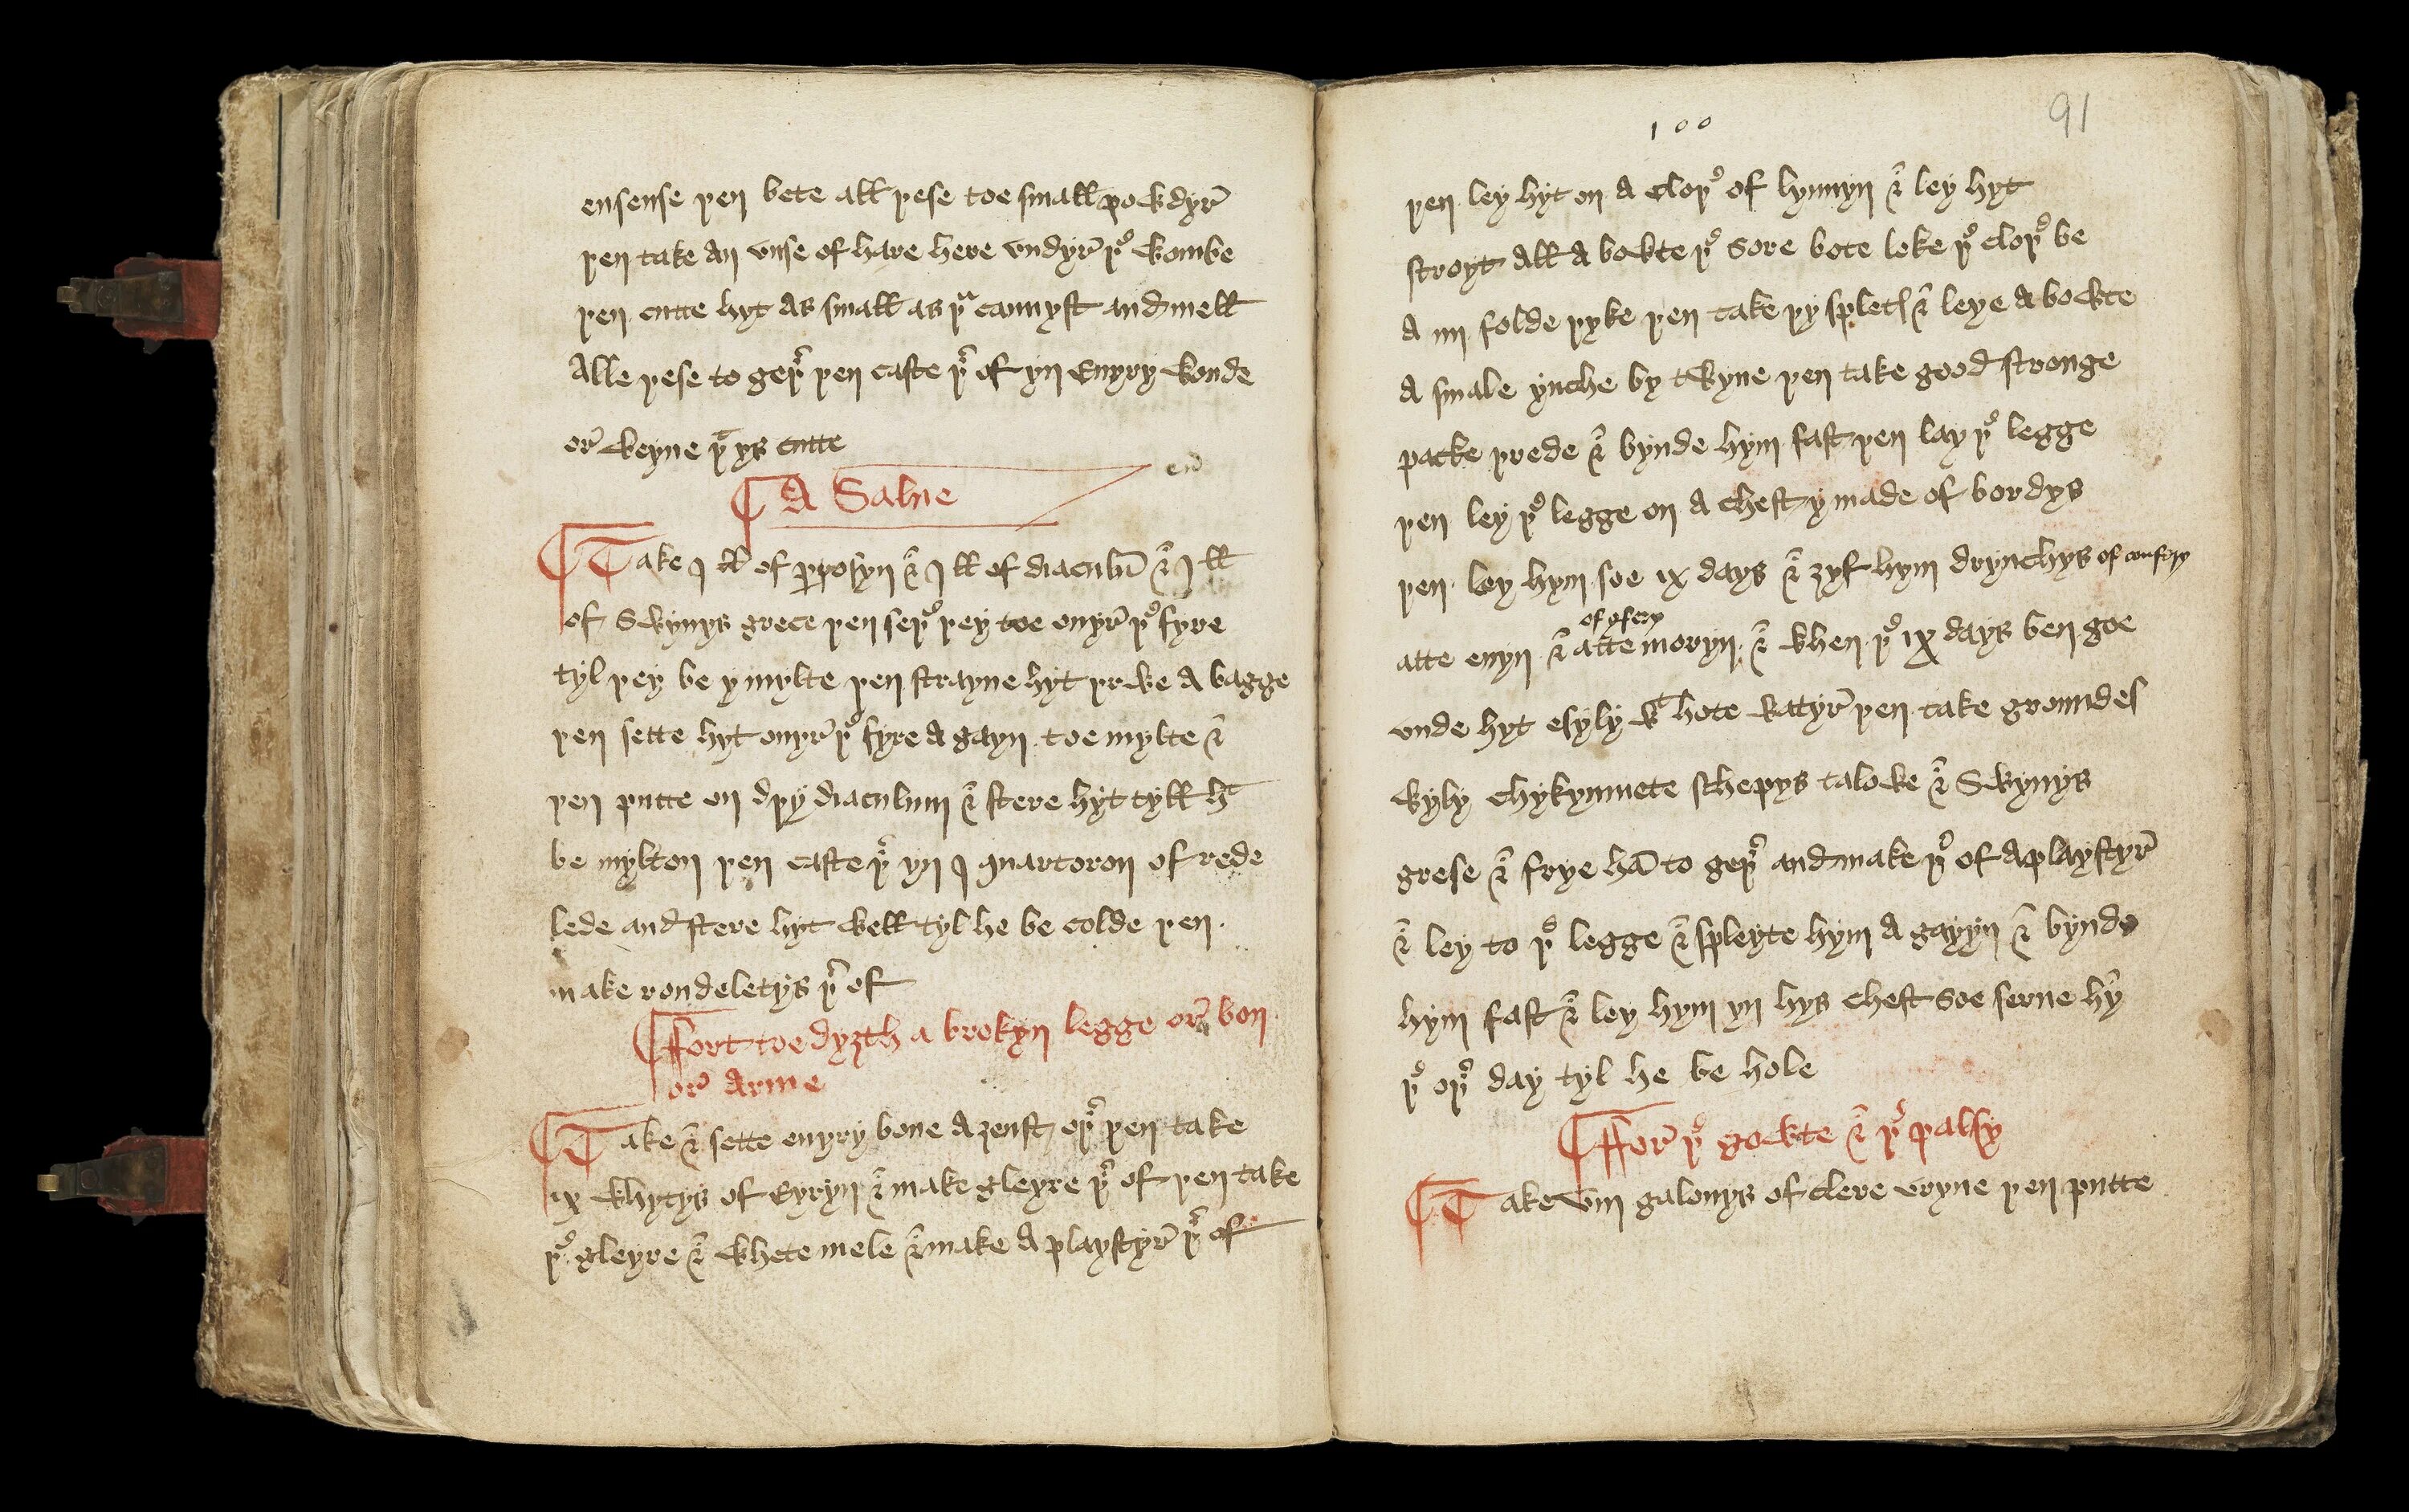 ensense þen bete all þese toe small powdyr
þen take an vnse of hare here vndyr þe wombe
þen cutte hyt as small as þu cannyst and mell
Alle þese to geþer þen caste þer of yn Euyry wonde
or veyne þat ys cutte
A Salue
Take j ll of þrosyn & j ll of diaculum & j ll
of Swynys grece þen seþe þey toe ouyr þe fyre
tyl þey be y mylte þen strayne hyt þrwe A bagge
þen sette hyt ouyr þe fyre A gayn toe mylte &
þen putte on dpy diaculum & stere hyt tyll ht
be mylton þen caste þer yn j quartoron of rede
lede and stere hyt well tyl he be colde þen
make rondeletys þer of
Ffort toe dyȝth a brokyn legge or bon
or Arme
Take & sette euyry bone A ȝenst oþer þen take
ix whytys of Eyryn & make gleyre þer of þen take
þe gleyre & whete mele & make A playstyr þer of
100
91
þen ley hyt on A cloþe of lynnyn & ley hyt
stroyt All A bowte þe sore bote loke þe cloþe be
A iiij folde þyke þen take þy spletes & leye A bowte
A smale ynche by twyne þen take good stronge
packe þrede & bynde hym fast þen lay þe legge
þen ley þe legge on A chest y made of bordys
þen ley hym soe ix days & ȝyf hym drynchys of comfery
of osery
atte euyn & atte moryn & when þe ix days ben goe
vnde hyt esyly wt hote watyr þen take groundes
wyly chykynmete schepys talowe & Swynys
grese & frye ham to geþer and make þer of A playstyr
& ley to þe legge & spleyte hym A gayyn & bynde
hym fast & ley hym yn hys chest soe serue hym
þe oþer day tyl he be hole
Ffor þe gowte & þe palsy
Take viij galonys of clere vryne þen putte